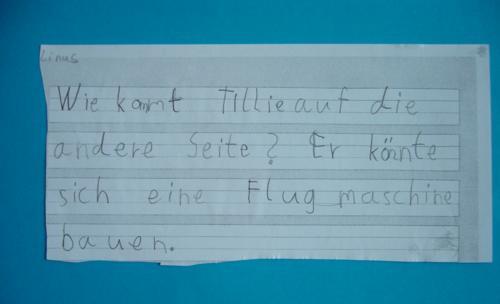 Linus
Wie kommt Tillie auf die
andere Seite? Er könnte
sich eine Flugmaschine
bauen.